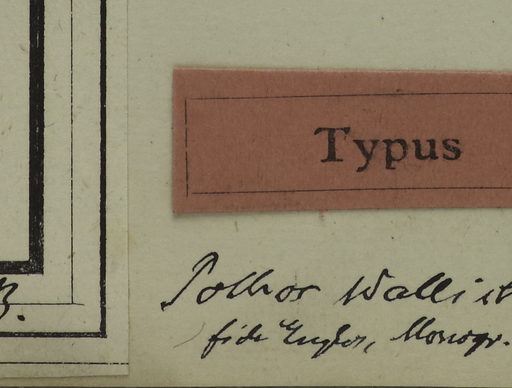 Typus
Pothos Walli
fide Engler, Monogr.